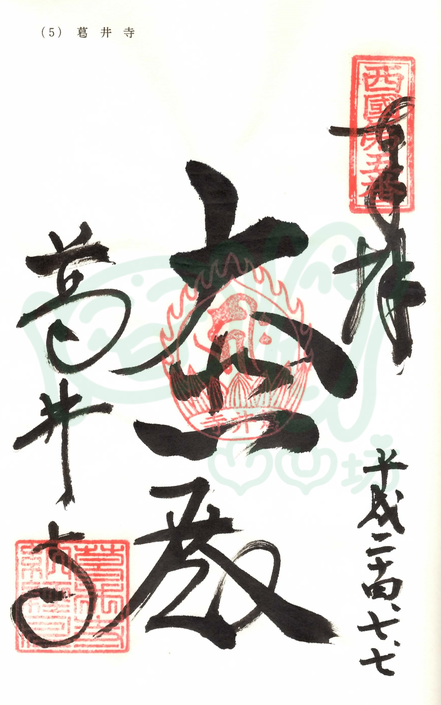 (5) 葛井寺
西國第五番
奉拝
平成二十四、七、七
大悲殿
葛井寺
葛井寺